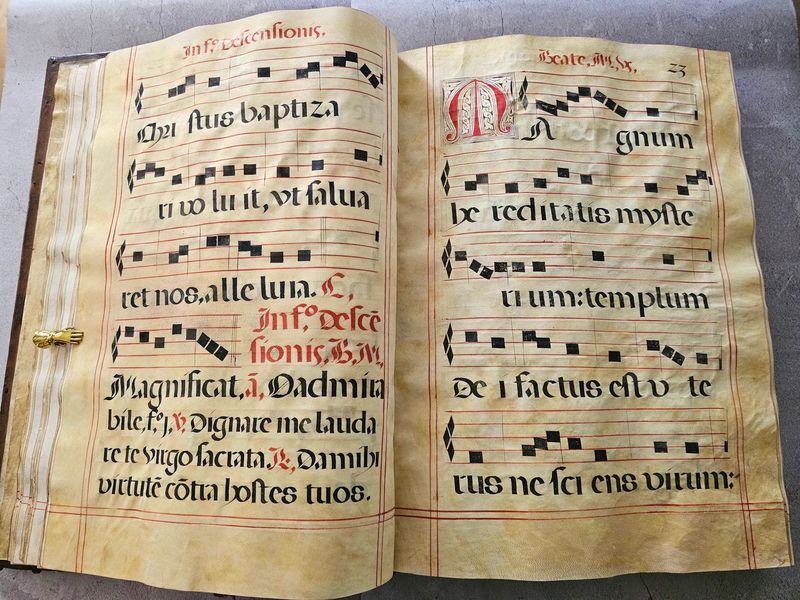 Inf.º Descensionis.
Chri stus baptiza
ri vo lu it, vt salua
ret nos, alle luia. C,
Inf.º Descē
sionis, B. M,
Magnificat, ā, O admira
bile, f.º j, V, Dignare me lauda
re te virgo sacrata R, Da mihi
virtutē cōtra hostes tuos.
Beate, M. Vx, 23
MA gnum
he reditatis myste
rium: templum
De i factus est v te
rus ne sci ens virum: